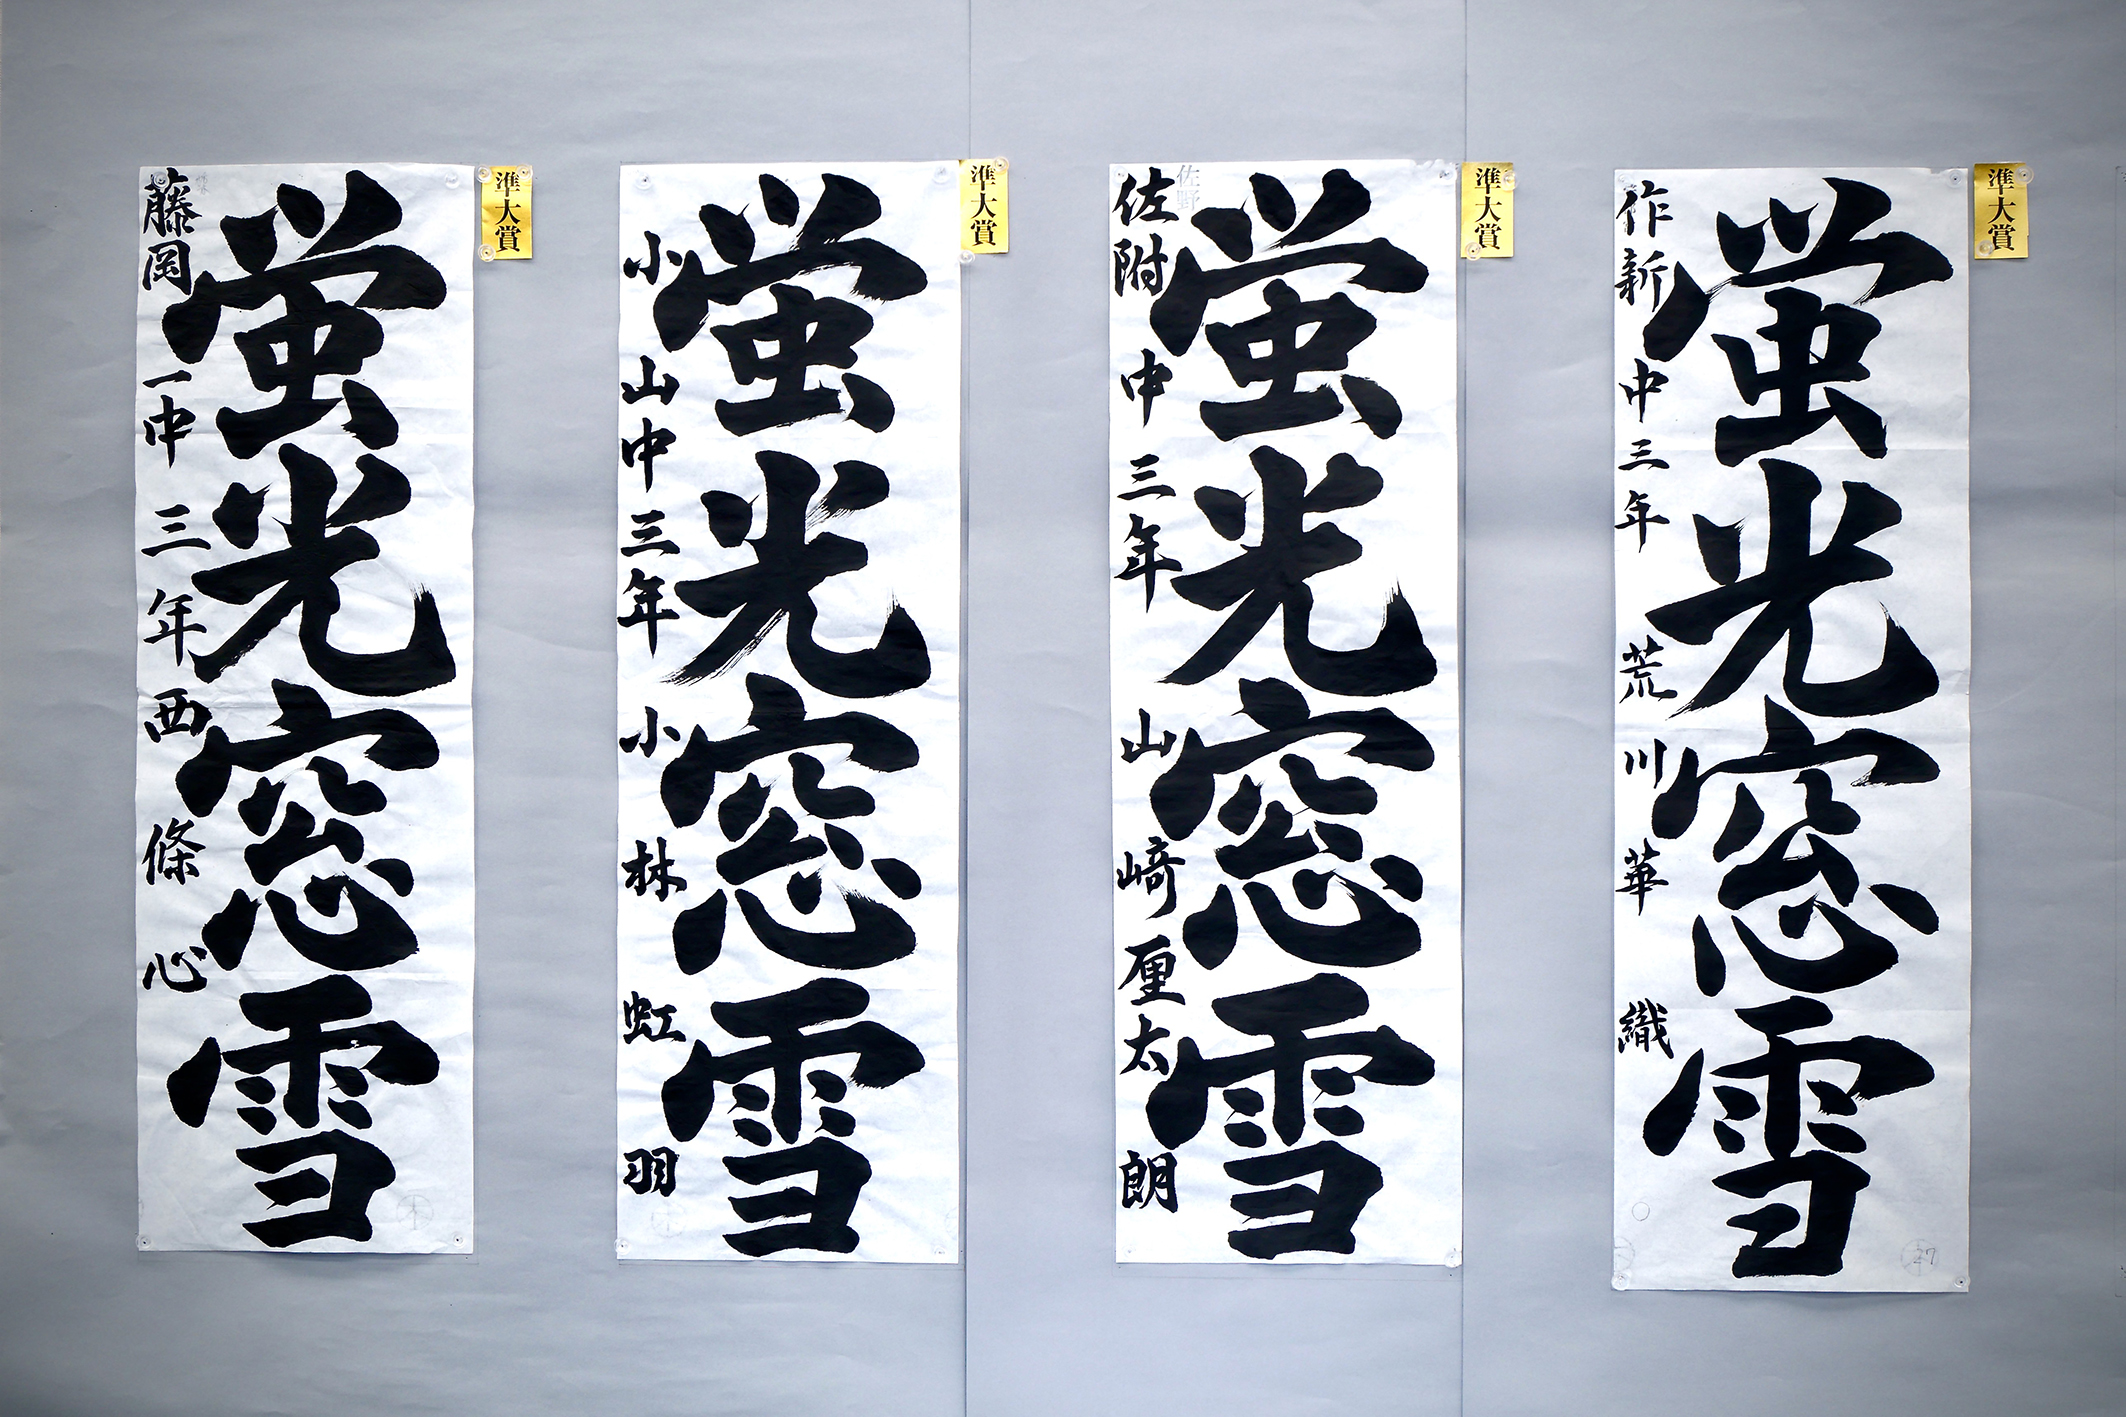 準大賞
螢光窓雪
作新中三年 荒川華織
準大賞
螢光窓雪
佐附中三年 山﨑厘太朗
佐野
準大賞
螢光窓雪
小山中三年 小林虹羽
準大賞
螢光窓雪
藤岡一中三年 西條心